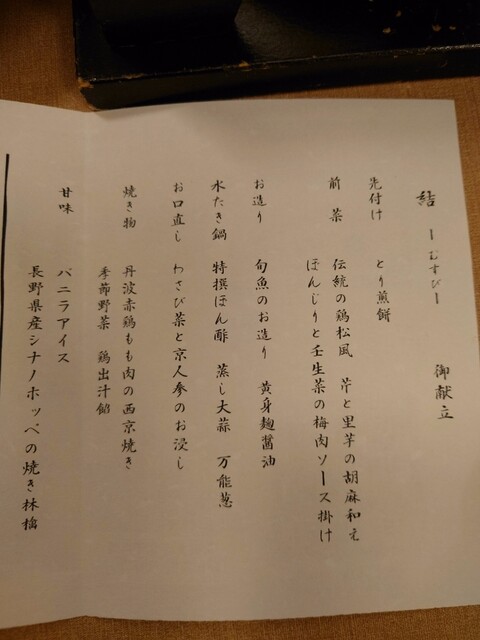 結 ーむすびー 御献立
先付け とり煎餅
前菜 伝統の鶏松風 芹と里芋の胡麻和え
ぼんじりと壬生菜の梅肉ソース掛け
お造り 旬魚のお造り 黄身麹醤油
水たき鍋 特撰ぽん酢 蒸し大蒜 万能葱
お口直し わさび菜と京人参のお浸し
焼き物 丹波赤鶏もも肉の西京焼き
季節野菜 鶏出汁餡
甘味 バニラアイス
長野県産シナノホッペの焼き林檎